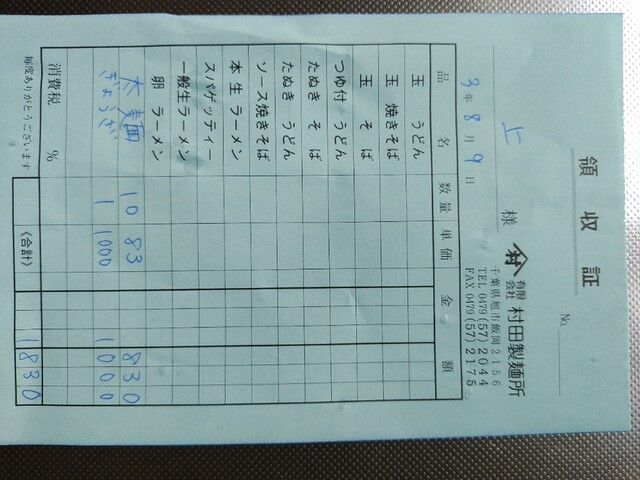 領収証
No.
上 様
3年8月9日
有限会社 村田製麺所
千葉県旭市飯岡2156
TEL 0479(57)2044
FAX 0479(57)2175
品名 数量 単価 金額
玉うどん
玉焼きそば
玉そば
つゆ付うどん
たぬきそば
たぬきうどん
ソース焼きそば
本生ラーメン
スパゲッティー
一般生ラーメン
卵ラーメン
太麺 10 83 830
ぎょうざ 1 1000 1000
消費税 %
(合計) 1830
毎度ありがとうございます